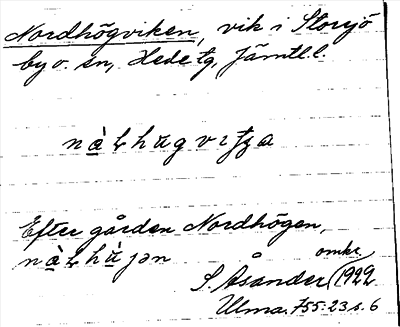 Nordhögviken, vik i Storsjö
by o. sn, Hede tg, Jämtl. l.
Efter gården Nordhögen,
omkr.
S. Åsander, 1922
Ulma. 755:23 s. 6